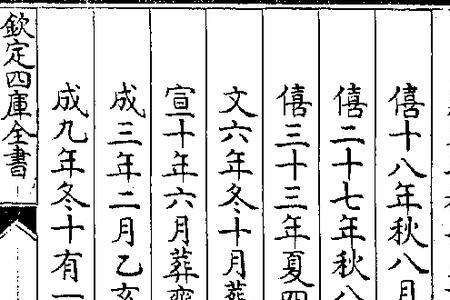 僖十八年秋八月
僖二十七年秋八
僖三十三年夏四
文六年冬十月葬
宣十年六月葬齊
成三年二月乙亥
成九年冬十有一
欽定四庫全書